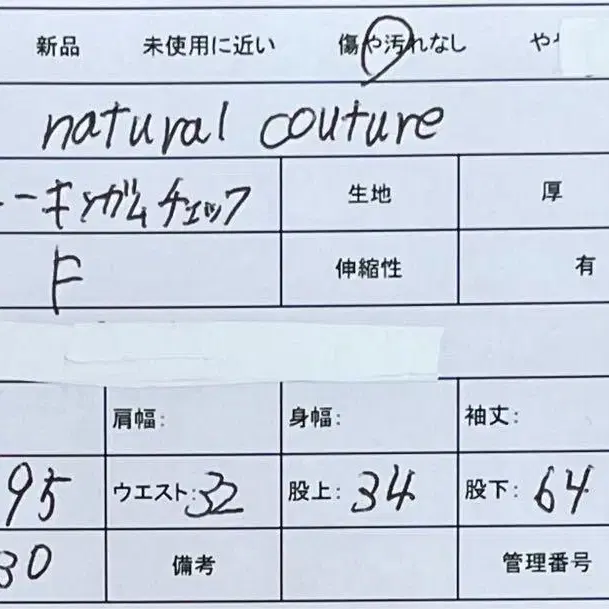 新品 未使用に近い 傷や汚れなし や
natural couture
ーギンガムチェック 生地 厚
F 伸縮性 有
肩幅: 身幅: 袖丈:
95 ウエスト:32 股上:34 股下:64
30 備考 管理番号